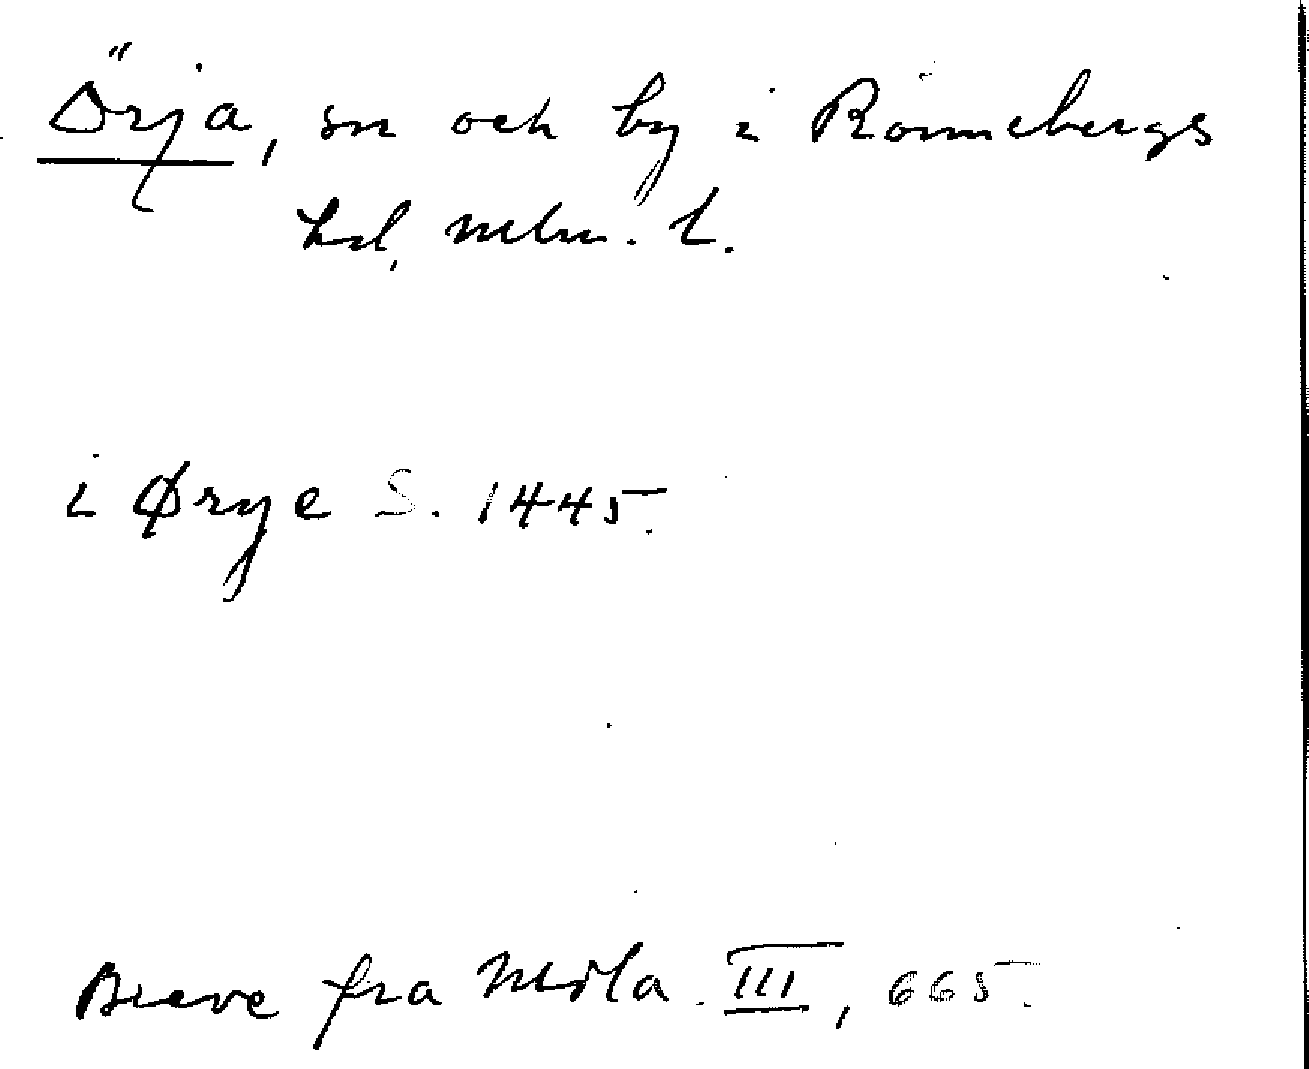 Örja, sn och by i Rönnebergs
hd, Mlm. l.
i Ørye S. 1445.
Breve fra Mdla. III, 665.